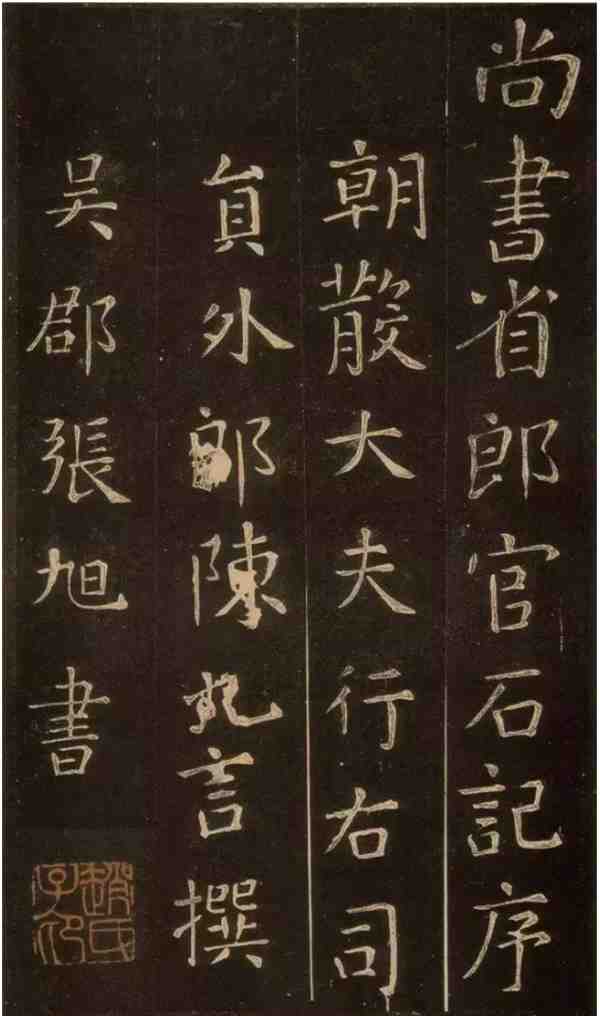 尚書省郎官石記序
朝散大夫行右司
員外郎陳九言撰
吳郡張旭書
趙氏子昂